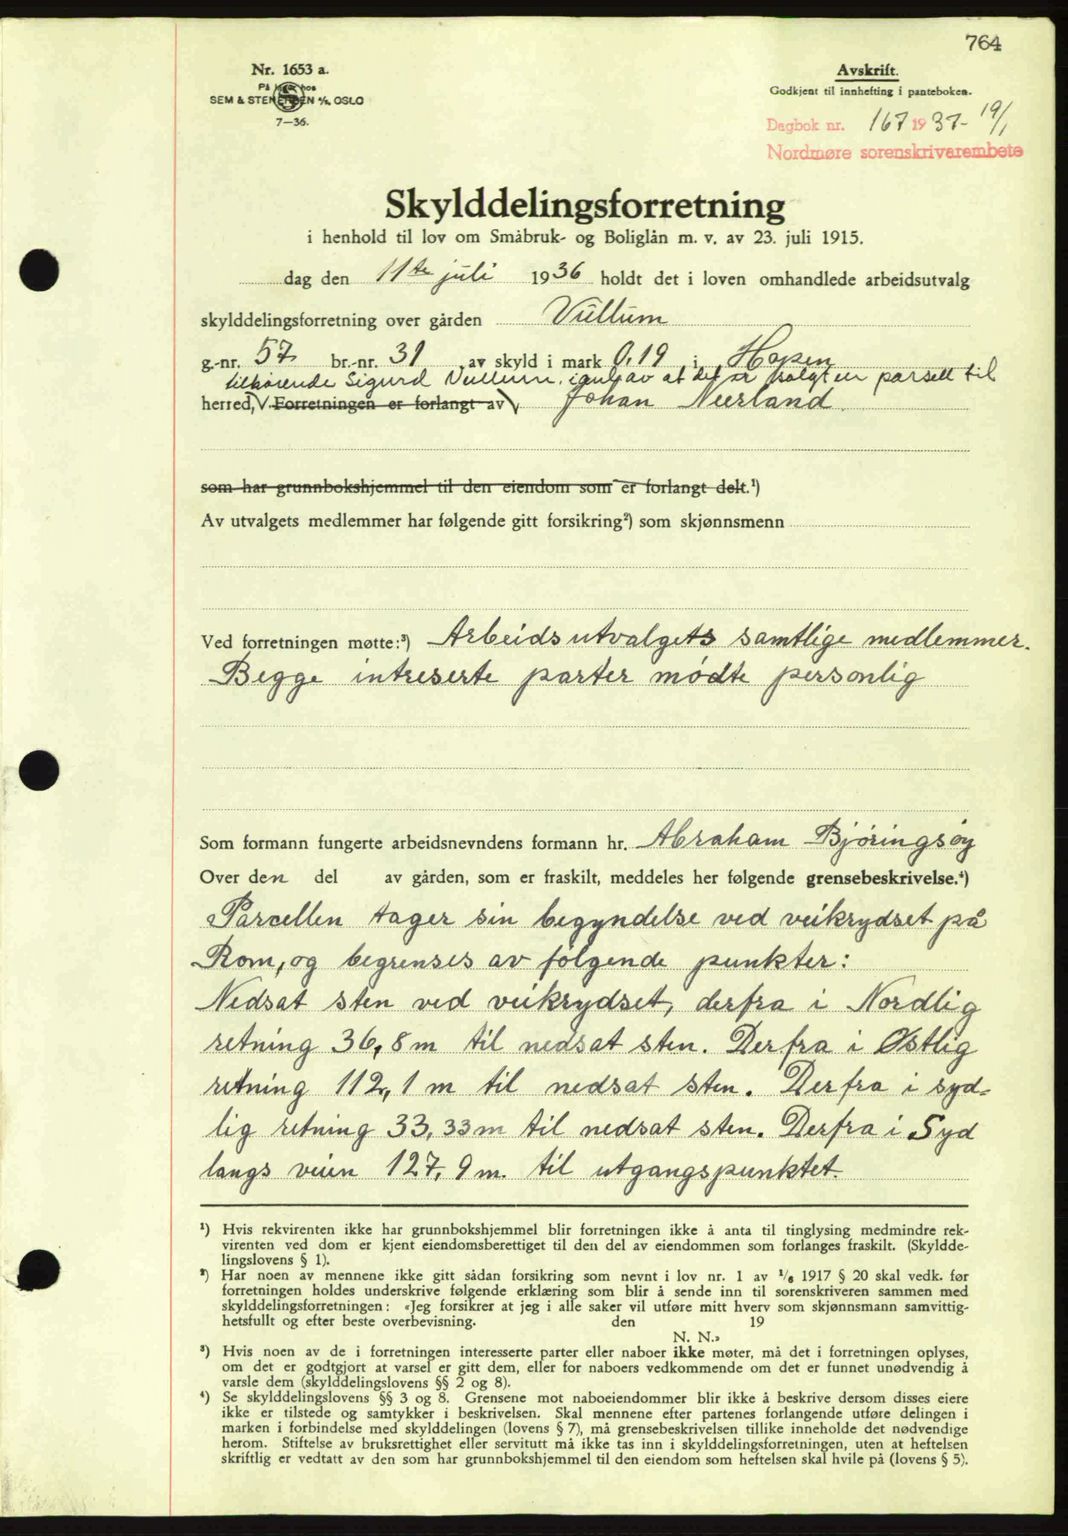 764
Nr. 1653 a.
På lager hos
SEM & STENERSEN A/S, OSLO
7—36.
Avskrift.
Godkjent til innhefting i panteboken.
Dagbok nr. 167 1937- 19/1
Nordmøre sorenskriverembete
Skylddelingsforretning
i henhold til lov om Småbruk- og Boliglån m. v. av 23. juli 1915.
dag den 11te juli 1936 holdt det i loven omhandlede arbeidsutvalg
skylddelingsforretning over gården Vullum
g.-nr. 57 br.-nr. 31 av skyld i mark 0,19 i Hopen
tilhørende Sigurd Vullum, i anl. av at det er solgt en parsell til
herred, V. Forretningen er forlangt av V Johan Neerland.
som har grunnbokshjemmel til den eiendom som er forlangt delt.¹)
Av utvalgets medlemmer har følgende gitt forsikring²) som skjønnsmenn
Ved forretningen møtte:³) Arbeidsutvalgets samtlige medlemmer.
Begge intreserte parter mødte personlig
Som formann fungerte arbeidsnevndens formann hr. Abraham Bjøringsøy
Over den del av gården, som er fraskilt, meddeles her følgende grensebeskrivelse.⁴)
Parcellen tager sin begyndelse ved veikrydset på
Rom, og begrenses av følgende punkter:
Nedsat sten ved veikrydset, derfra i Nordlig
retning 36,8 m til nedsat sten. Derfra i Østlig
retning 112,1 m til nedsat sten. Derfra i syd-
lig retning 33,33 m til nedsat sten. Derfra i Syd
langs veien 127,9 m. til utgangspunktet.
¹) Hvis rekvirenten ikke har grunnbokshjemmel blir forretningen ikke å anta til tinglysing medmindre rek-
virenten ved dom er kjent eiendomsberettiget til den del av eiendommen som forlanges fraskilt. (Skyldde-
lingslovens § 1).
²) Har noen av mennene ikke gitt sådan forsikring som nevnt i lov nr. 1 av 1/6 1917 § 20 skal vedk. før
forretningen holdes underskrive følgende erklæring som blir å sende inn til sorenskriveren sammen med
skylddelingsforretningen: «Jeg forsikrer at jeg i alle saker vil utføre mitt hverv som skjønnsmann samvittig-
hetsfullt og efter beste overbevisning. den 19
N. N.»
³) Hvis noen av de i forretningen interesserte parter eller naboer ikke møter, må det i forretningen oplyses,
om det er godtgjort at varsel er gitt dem, eller for naboers vedkommende om det er funnet unødvendig å
varsle dem (skylddelingslovens §§ 2 og 8).
⁴) Se skylddelingslovens §§ 3 og 8. Grensene mot naboeiendommer blir ikke å beskrive dersom disses eiere
ikke er tilstede og samtykker i beskrivelsen. Skal mennene efter partenes forlangende utføre delingen i
marken i forbindelse med skylddelingen (lovens § 7), må grensebeskrivelsen tillike inneholde det nødvendige
herom. Stiftelse av bruksrettighet eller servitutt må ikke tas inn i skylddelingsforretningen, uten at heftelsen
skriftlig er vedtatt av den som har grunnbokshjemmel til den eiendom som heftelsen skal hvile på (lovens § 5).